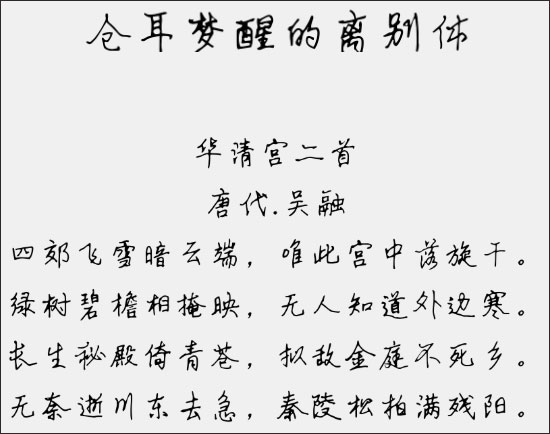 仓耳梦醒的离别体
华清宫二首
唐代.吴融
四郊飞雪暗云端，唯此宫中落旋干。
绿树碧檐相掩映，无人知道外边寒。
长生秘殿倚青苍，拟敌金庭不死乡。
无奈逝川东去急，秦陵松柏满残阳。